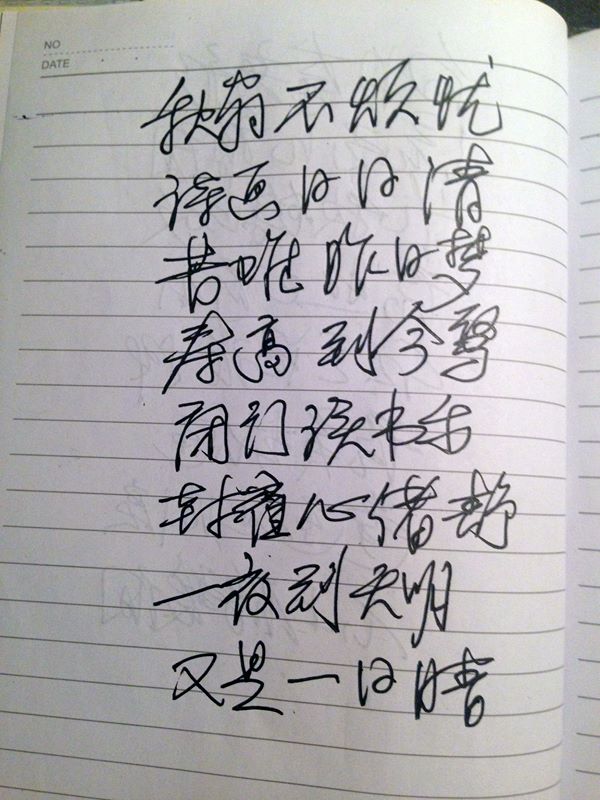 NO
DATE
秋翁不烦忧
诗画日日清
昔唯昨日梦
寿高到今
闭门读书乐
封心
一夜到天明
又是一日晴